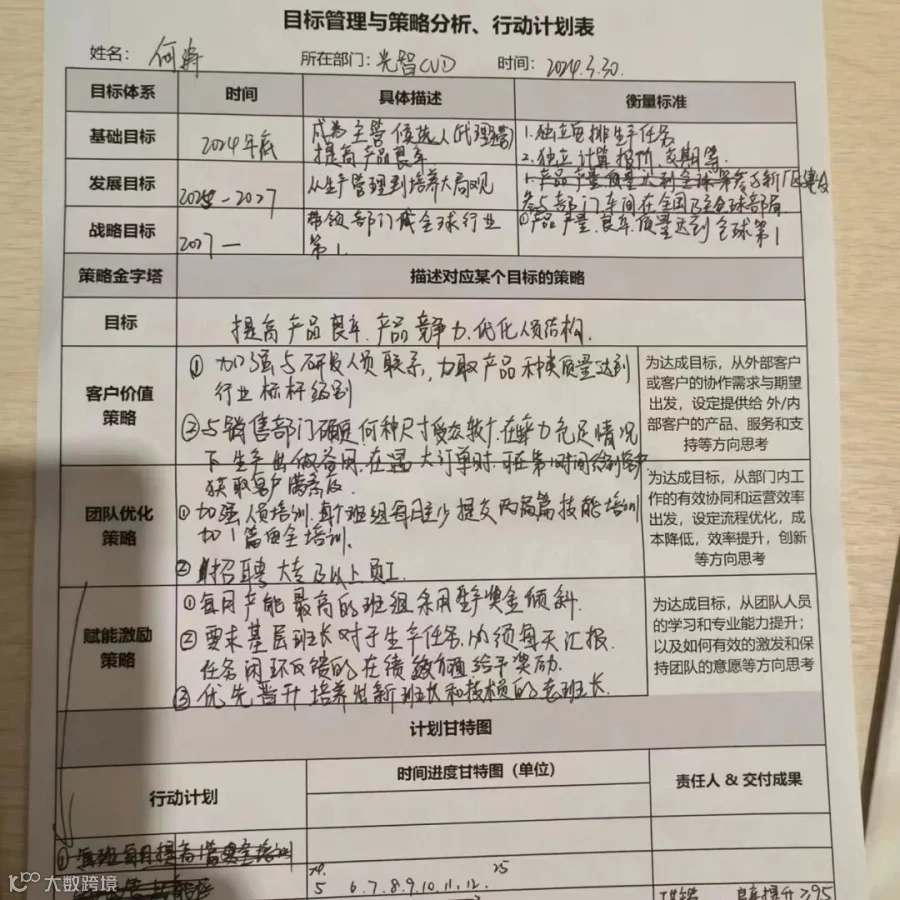 目标管理与策略分析、行动计划表
姓名： 所在部门：光智CVD 时间：2024.3.30.
目标体系 时间 具体描述 衡量标准
基础目标 2024年底 成为主管候选人(代理主管)
提高产品良率
1.独立安排生产任务
2.独立计算报价、交期等.
发展目标 2025-2027 从生产管理到培养大局观
参与部门车间在全国乃至全球部局
战略目标 2027— 带领部门成全球行业
第1.
①产品产量、良率、质量达到全球第1
策略金字塔 描述对应某个目标的策略
目标 提高产品良率.产品竞争力.优化人员结构.
客户价值
策略
①加强与研发人员联系,力取产品种类质量达到
行业标杆级别
②与销售部门确定何种尺寸受众较广.在能力充足情况
下生产出做备用.在遇大订单时.可在第一时间给到客户
获取客户满意度.
为达成目标，从外部客户
或客户的协作需求与期望
出发，设定提供给 外/内
部客户的产品、服务和支
持等方向思考
团队优化
策略
①加强人员培训.每个班组每月至少提交两篇技能培训
加1篇安全培训.
②招聘大专及以上员工.
为达成目标，从部门内工
作的有效协同和运营效率
出发，设定流程优化，成
本降低，效率提升，创新
等方向思考
赋能激励
策略
①每月产能最高的班组采用季奖金倾斜.
②要求基层班长对于生产任务.必须每天汇报.
任务闭环反馈的在绩效方面给予奖励.
③优先晋升培养出新班长和技术员的老班长.
为达成目标，从团队人员
的学习和专业能力提升；
以及如何有效的激发和保
持团队的意愿等方向思考
计划甘特图
行动计划 时间进度甘特图（单位） 责任人 & 交付成果
24. 25
5 6.7.8.9.10.11.12.
良率提升≥95
大数跨境